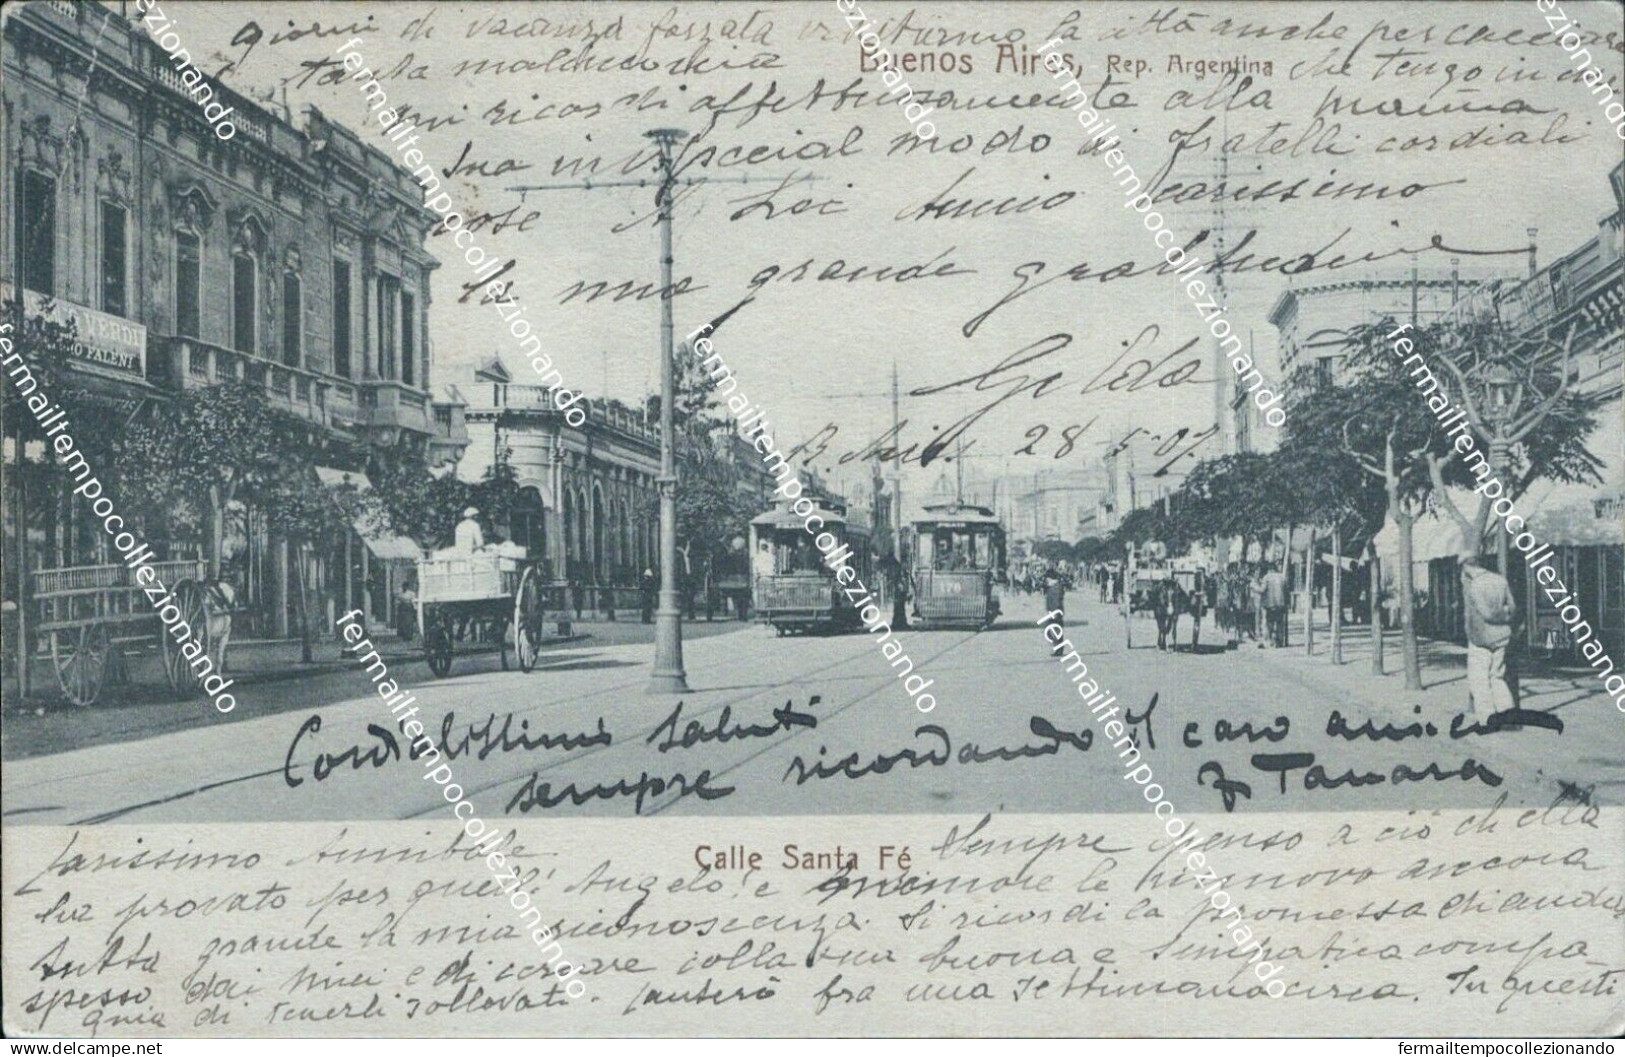 giorni di vacanza forzata visiterò la città anche per cacciare
tanta malinconia che tengo in cuore
Buenos Aires, Rep. Argentina
mi ricordi affettuosamente alla mamma
sua in special modo ai fratelli cordiali
cose A Lei Amico carissimo
la mia grande gratitudine
Gilda
B. Aires 28-5-07.
VERDI
Cordialissimi saluti
sempre ricordando il caro amico
Tanara
Calle Santa Fé
Carissimo Annibale. Sempre penso a ciò ch'ella
ha provato per quell'Angelo! e le rinnovo ancora
tutta grande la mia riconoscenza. Si ricordi la promessa di andare
spesso dai miei e di cercare colla sua buona e simpatica compa-
gnia di tenerli sollevati. Canterò fra una settimana circa. In questi
fermailtempocollezionando
fermailtempocollezionando.com